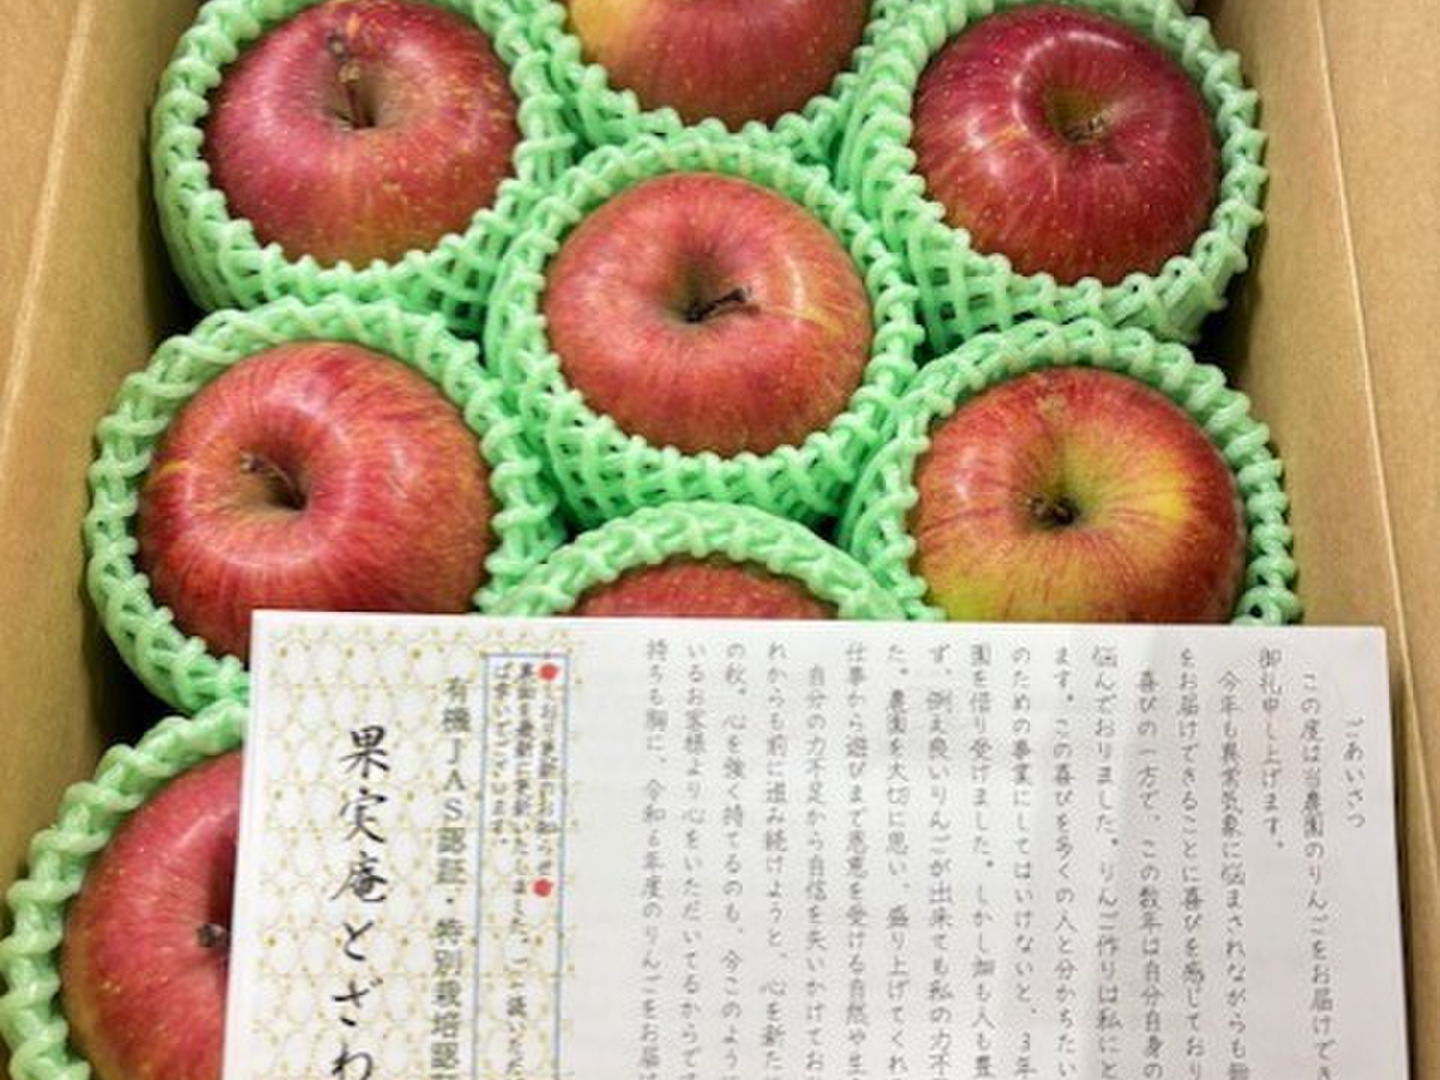 ごあいさつ
この度は当農園のりんごをお届けでき
御礼申し上げます。
今年も異常気象に悩まされながらも
をお届けできることに喜びを感じており
喜びの一方で、この数年は自分自身の
悩んでおりました。りんご作りは私にと
ます。この喜びを多くの人と分かちたい
のための事業にしてはいけないと、3年
園を借り受けました。しかし畑も人も豊
ず、例え良いりんごが出来ても私の力不
た。農園を大切に思い、盛り上げてくれ
仕事から遊びまで恩恵を受ける自然や生
自分の力不足から自信を失いかけてお
れからも前に進み続けようと、心を新た
の秋。心を強く持てるのも、今このよう
いるお客様より心をいただいてるからで
持ちも胸に、令和6年度のりんごをお届
ば幸いでございます。
有機JAS認証・特別栽培認
果実庵とざわ